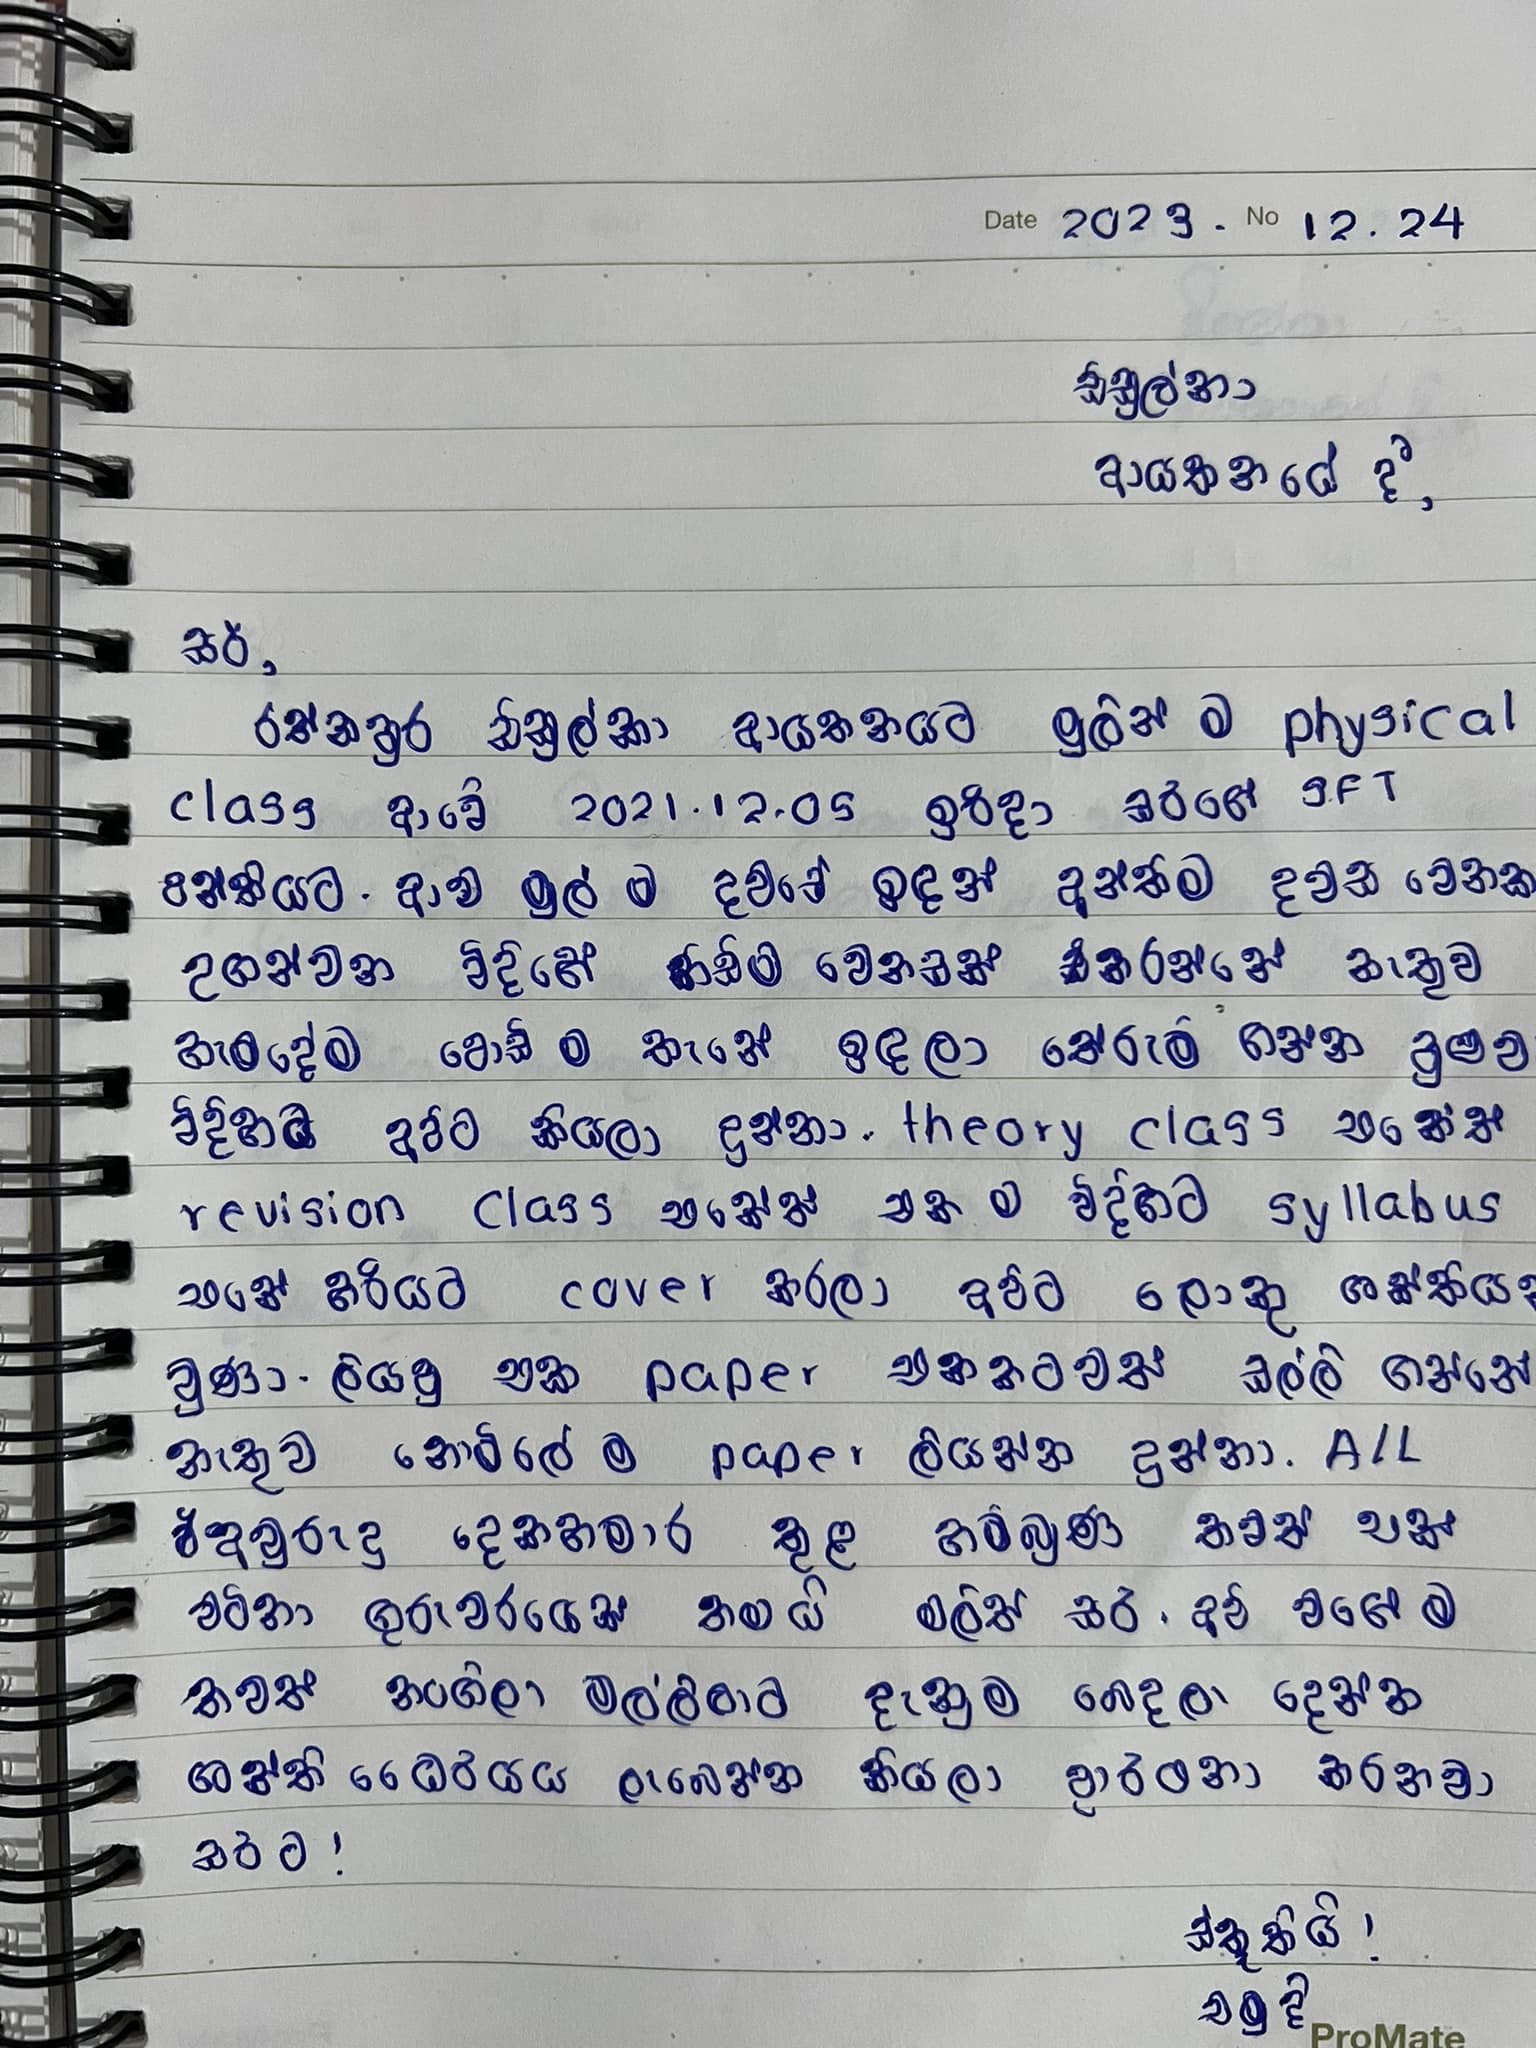 Date 2023. No 12.24
සිසුල්නා
ආයතනයේ දී,
සර්,
රත්නපුර සිසුල්නා ආයතනයට මුලින් ම physical
class ආවේ 2021.12.05 ඉරිදා සර්ගේ SFT
පන්තියට. ආව මුල් ම දවසේ ඉඳන් අන්තිම දවස වෙනකන්
උගන්වන විදිහේ කිසිම වෙනසක් කරන්නේ නැතුව
හැමදේම පොඩි ම තැනේ ඉඳලා තේරුම් ගන්න පුළුවන්
විදිහට අපිට කියලා දුන්නා. theory class එකේත්
revision class එකේත් එක ම විදිහට syllabus
එකේ හරියට cover කරලා අපිට ලොකු ශක්තියක්
වුණා. ලියපු එක paper එකකටවත් සල්ලි ගන්නේ
නැතුව නොමිලේ ම paper ලියන්න දුන්නා. A/L
අවුරුදු දෙකහමාර තුළ හම්බුණ තවත් එක්
වටිනා ගුරුවරයෙක් තමයි මලිත් සර්. අපි වගේ ම
තවත් නංගිලා මල්ලිලාට දැනුම බෙදලා දෙන්න
ශක්ති ධෛර්යය ලැබෙන්න කියලා ප්‍රාර්ථනා කරනවා
සර්ට!
ස්තූතියි!
චමුදි
ProMate